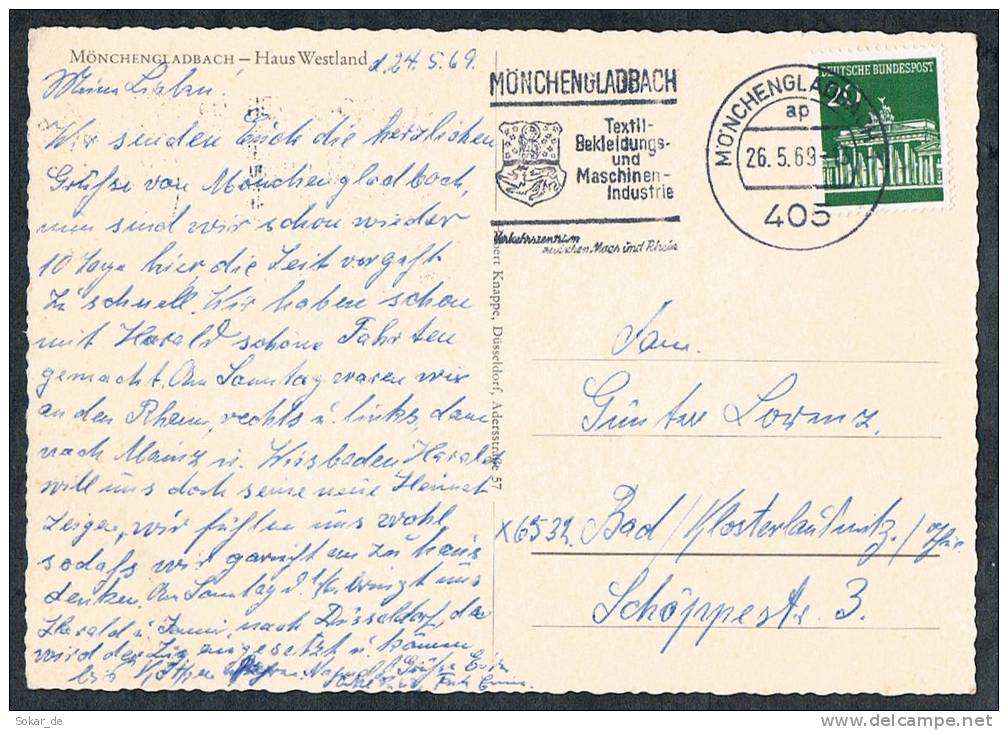 MÖNCHENGLADBACH – Haus Westland d. 24.5.69.
Meine Lieben!
Wir senden Euch die herzlichen
Grüße von Mönchengladbach,
nun sind wir schon wieder
10 Tage hier die Zeit vergeht
zu schnell. Wir haben schon
mit Harald schöne Fahrten
gemacht. Am Sonntag waren wir
an den Rhein, rechts u. links, dann
nach Mainz u. Wiesbaden Harald
will uns doch seine neue Heimat
zeigen, wir fühlen uns wohl,
sodaß wir garnicht an zu haus
denken. Am Sonntag d. bringt uns
Harald u. nach Düsseldorf, da
wird der Zug eingesetzt u. kommen
bis Grüße
MÖNCHENGLADBACH
Textil-
Bekleidungs-
und
Maschinen-
Industrie
Verkehrszentrum
zwischen Maas und Rhein
MÖNCHENGLADBACH
ap
26.5.69
405
DEUTSCHE BUNDESPOST
20
bert Knappe, Düsseldorf, Adersstraße 57
Fam.
Günter Lorenz,
x6532 Bad/Klosterlausnitz,/Thür.
Schöppestr. 3.
Sokar_de
www.delcampe.net